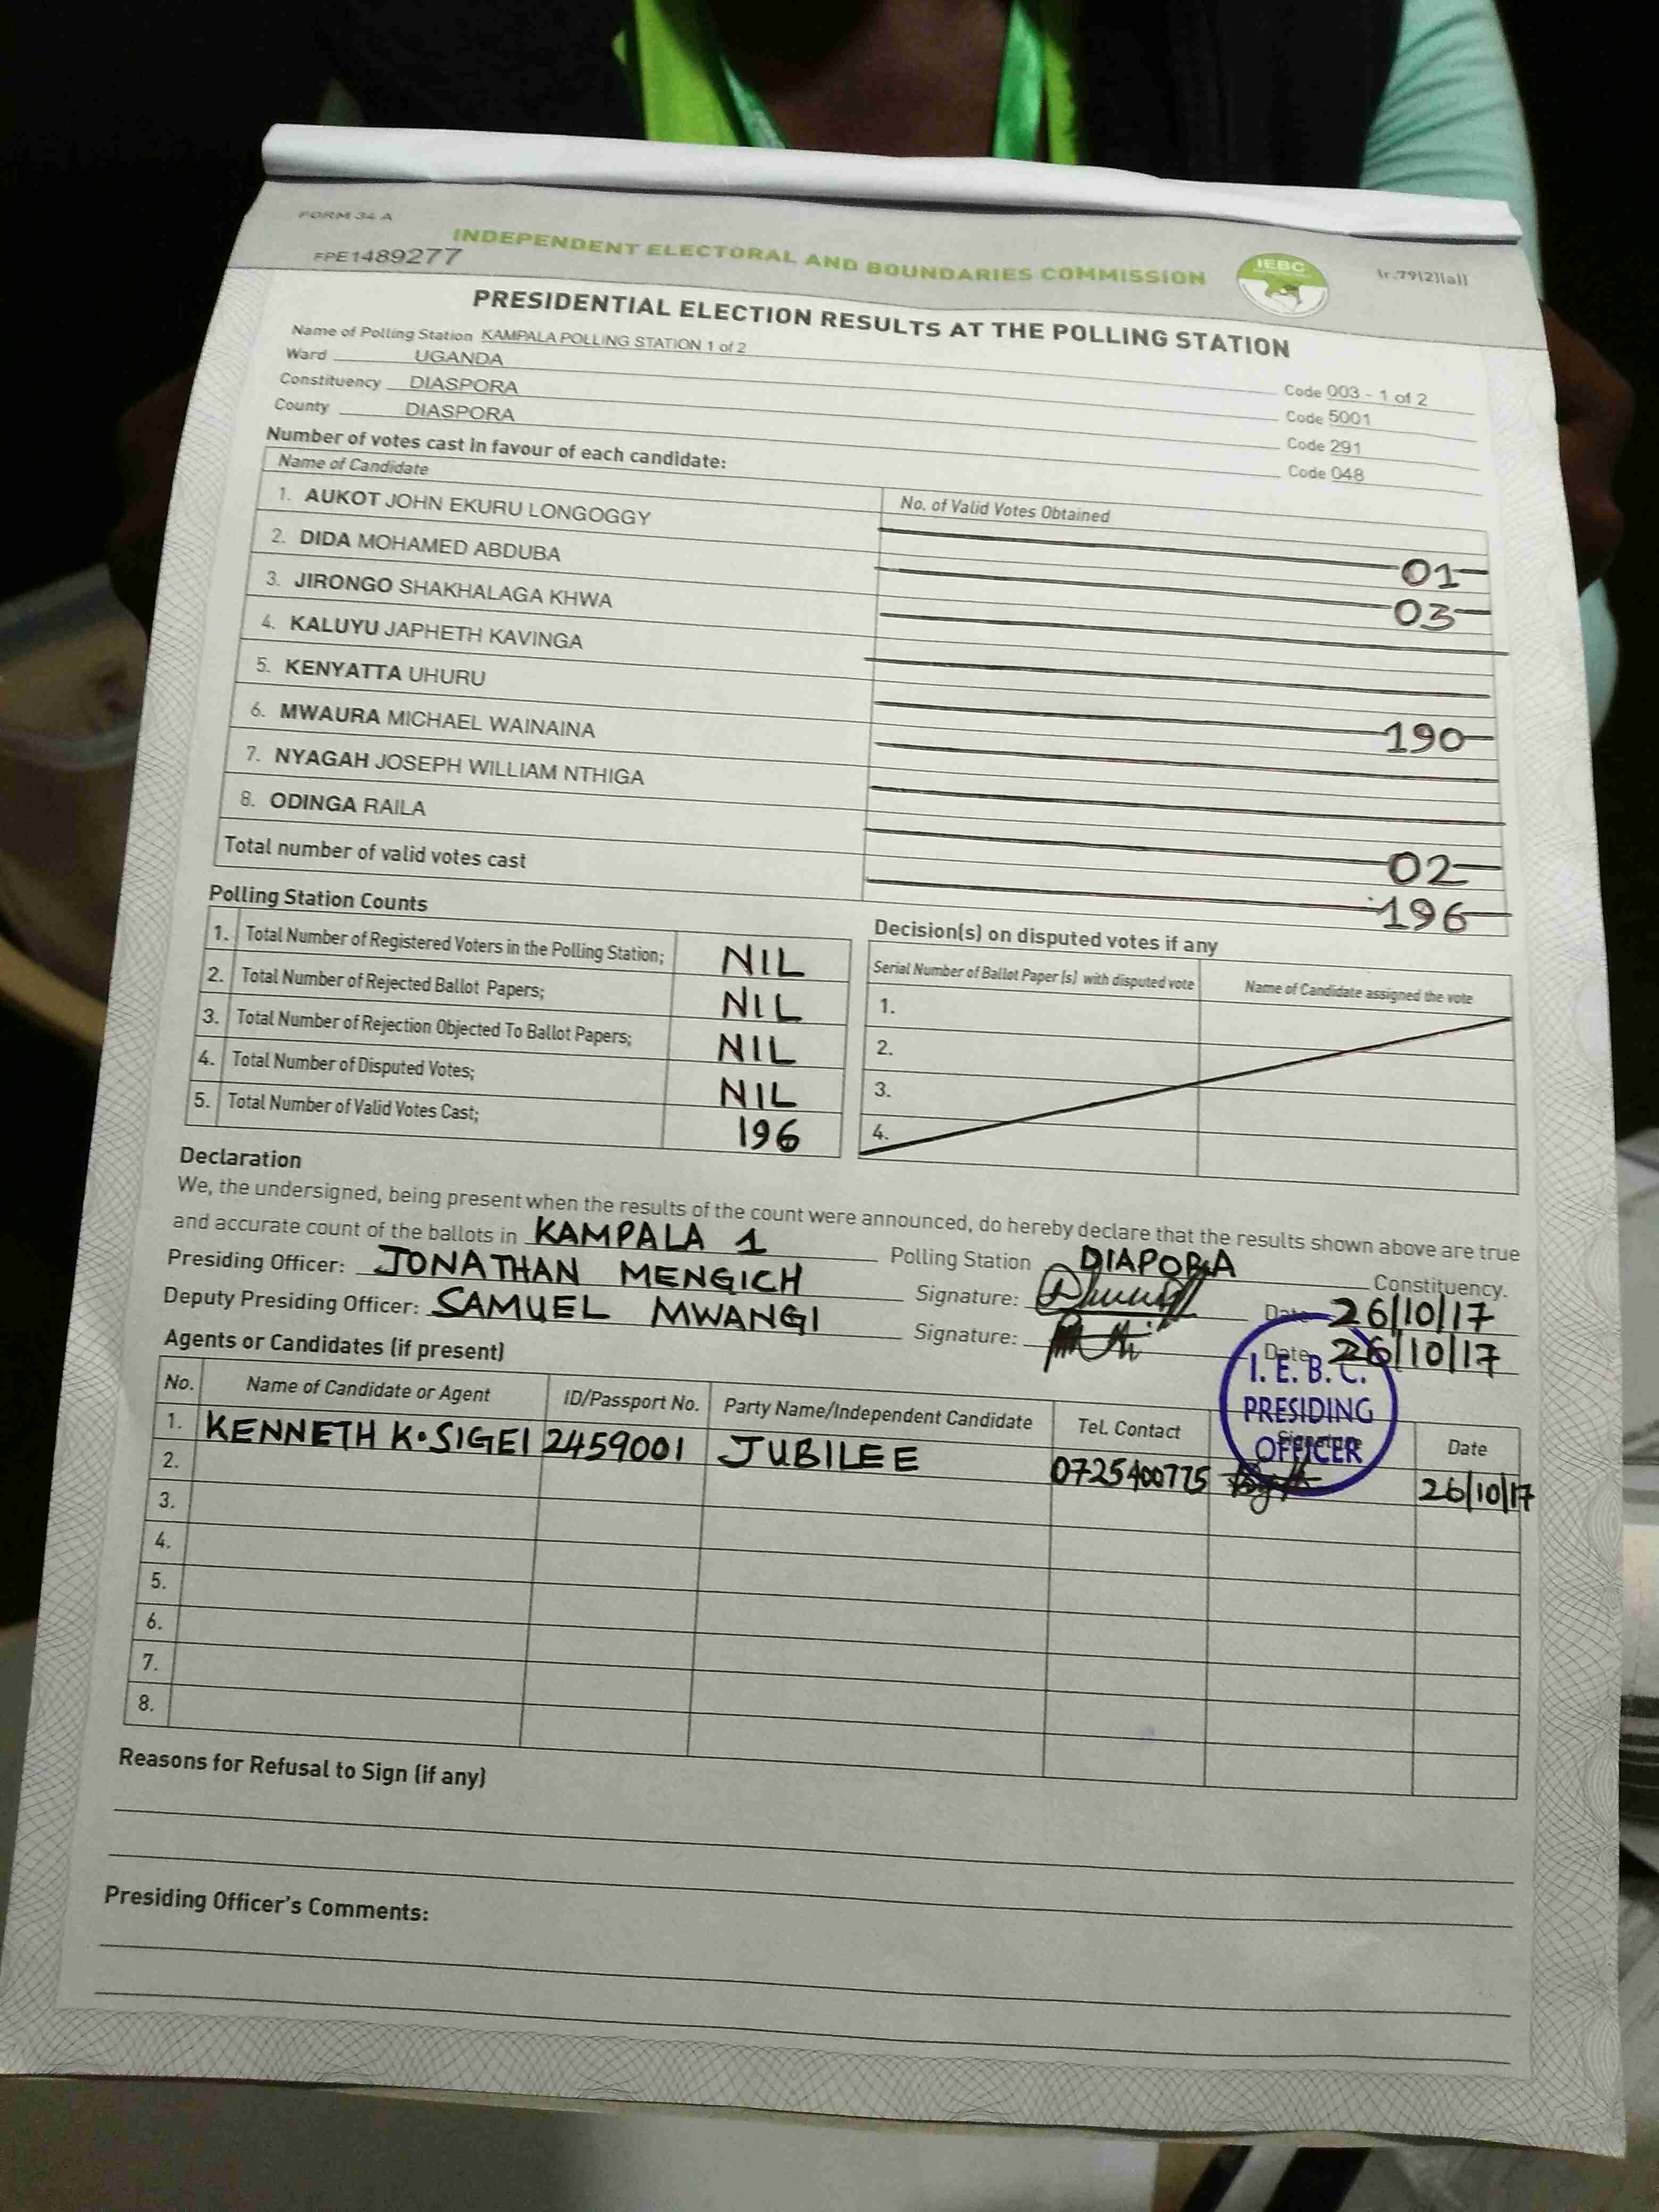 FORM 34 A
FPE1489277
INDEPENDENT ELECTORAL AND BOUNDARIES COMMISSION
IEBC
(r.79(2)(a))
PRESIDENTIAL ELECTION RESULTS AT THE POLLING STATION
Name of Polling Station KAMPALA POLLING STATION 1 of 2 Code 003 - 1 of 2
Ward UGANDA Code 5001
Constituency DIASPORA Code 291
County DIASPORA Code 048
Number of votes cast in favour of each candidate:
Name of Candidate No. of Valid Votes Obtained
1. AUKOT JOHN EKURU LONGOGGY 01
2. DIDA MOHAMED ABDUBA 03
3. JIRONGO SHAKHALAGA KHWA
4. KALUYU JAPHETH KAVINGA
5. KENYATTA UHURU 190
6. MWAURA MICHAEL WAINAINA
7. NYAGAH JOSEPH WILLIAM NTHIGA
8. ODINGA RAILA 02
Total number of valid votes cast 196
Polling Station Counts
1. Total Number of Registered Voters in the Polling Station; NIL
2. Total Number of Rejected Ballot Papers; NIL
3. Total Number of Rejection Objected To Ballot Papers; NIL
4. Total Number of Disputed Votes; NIL
5. Total Number of Valid Votes Cast; 196
Decision(s) on disputed votes if any
Serial Number of Ballot Paper (s) with disputed vote Name of Candidate assigned the vote
1.
2.
3.
4.
Declaration
We, the undersigned, being present when the results of the count were announced, do hereby declare that the results shown above are true
and accurate count of the ballots in KAMPALA 1 Polling Station DIAPORA Constituency.
Presiding Officer: JONATHAN MENGICH Signature: Date 26/10/17
Deputy Presiding Officer: SAMUEL MWANGI Signature: Date 26/10/17
I. E. B. C.
PRESIDING
OFFICER
Agents or Candidates (if present)
No. Name of Candidate or Agent ID/Passport No. Party Name/Independent Candidate Tel. Contact Signature Date
1. KENNETH K. SIGEI 2459001 JUBILEE 0725400775 26/10/17
2.
3.
4.
5.
6.
7.
8.
Reasons for Refusal to Sign (if any)
Presiding Officer's Comments: